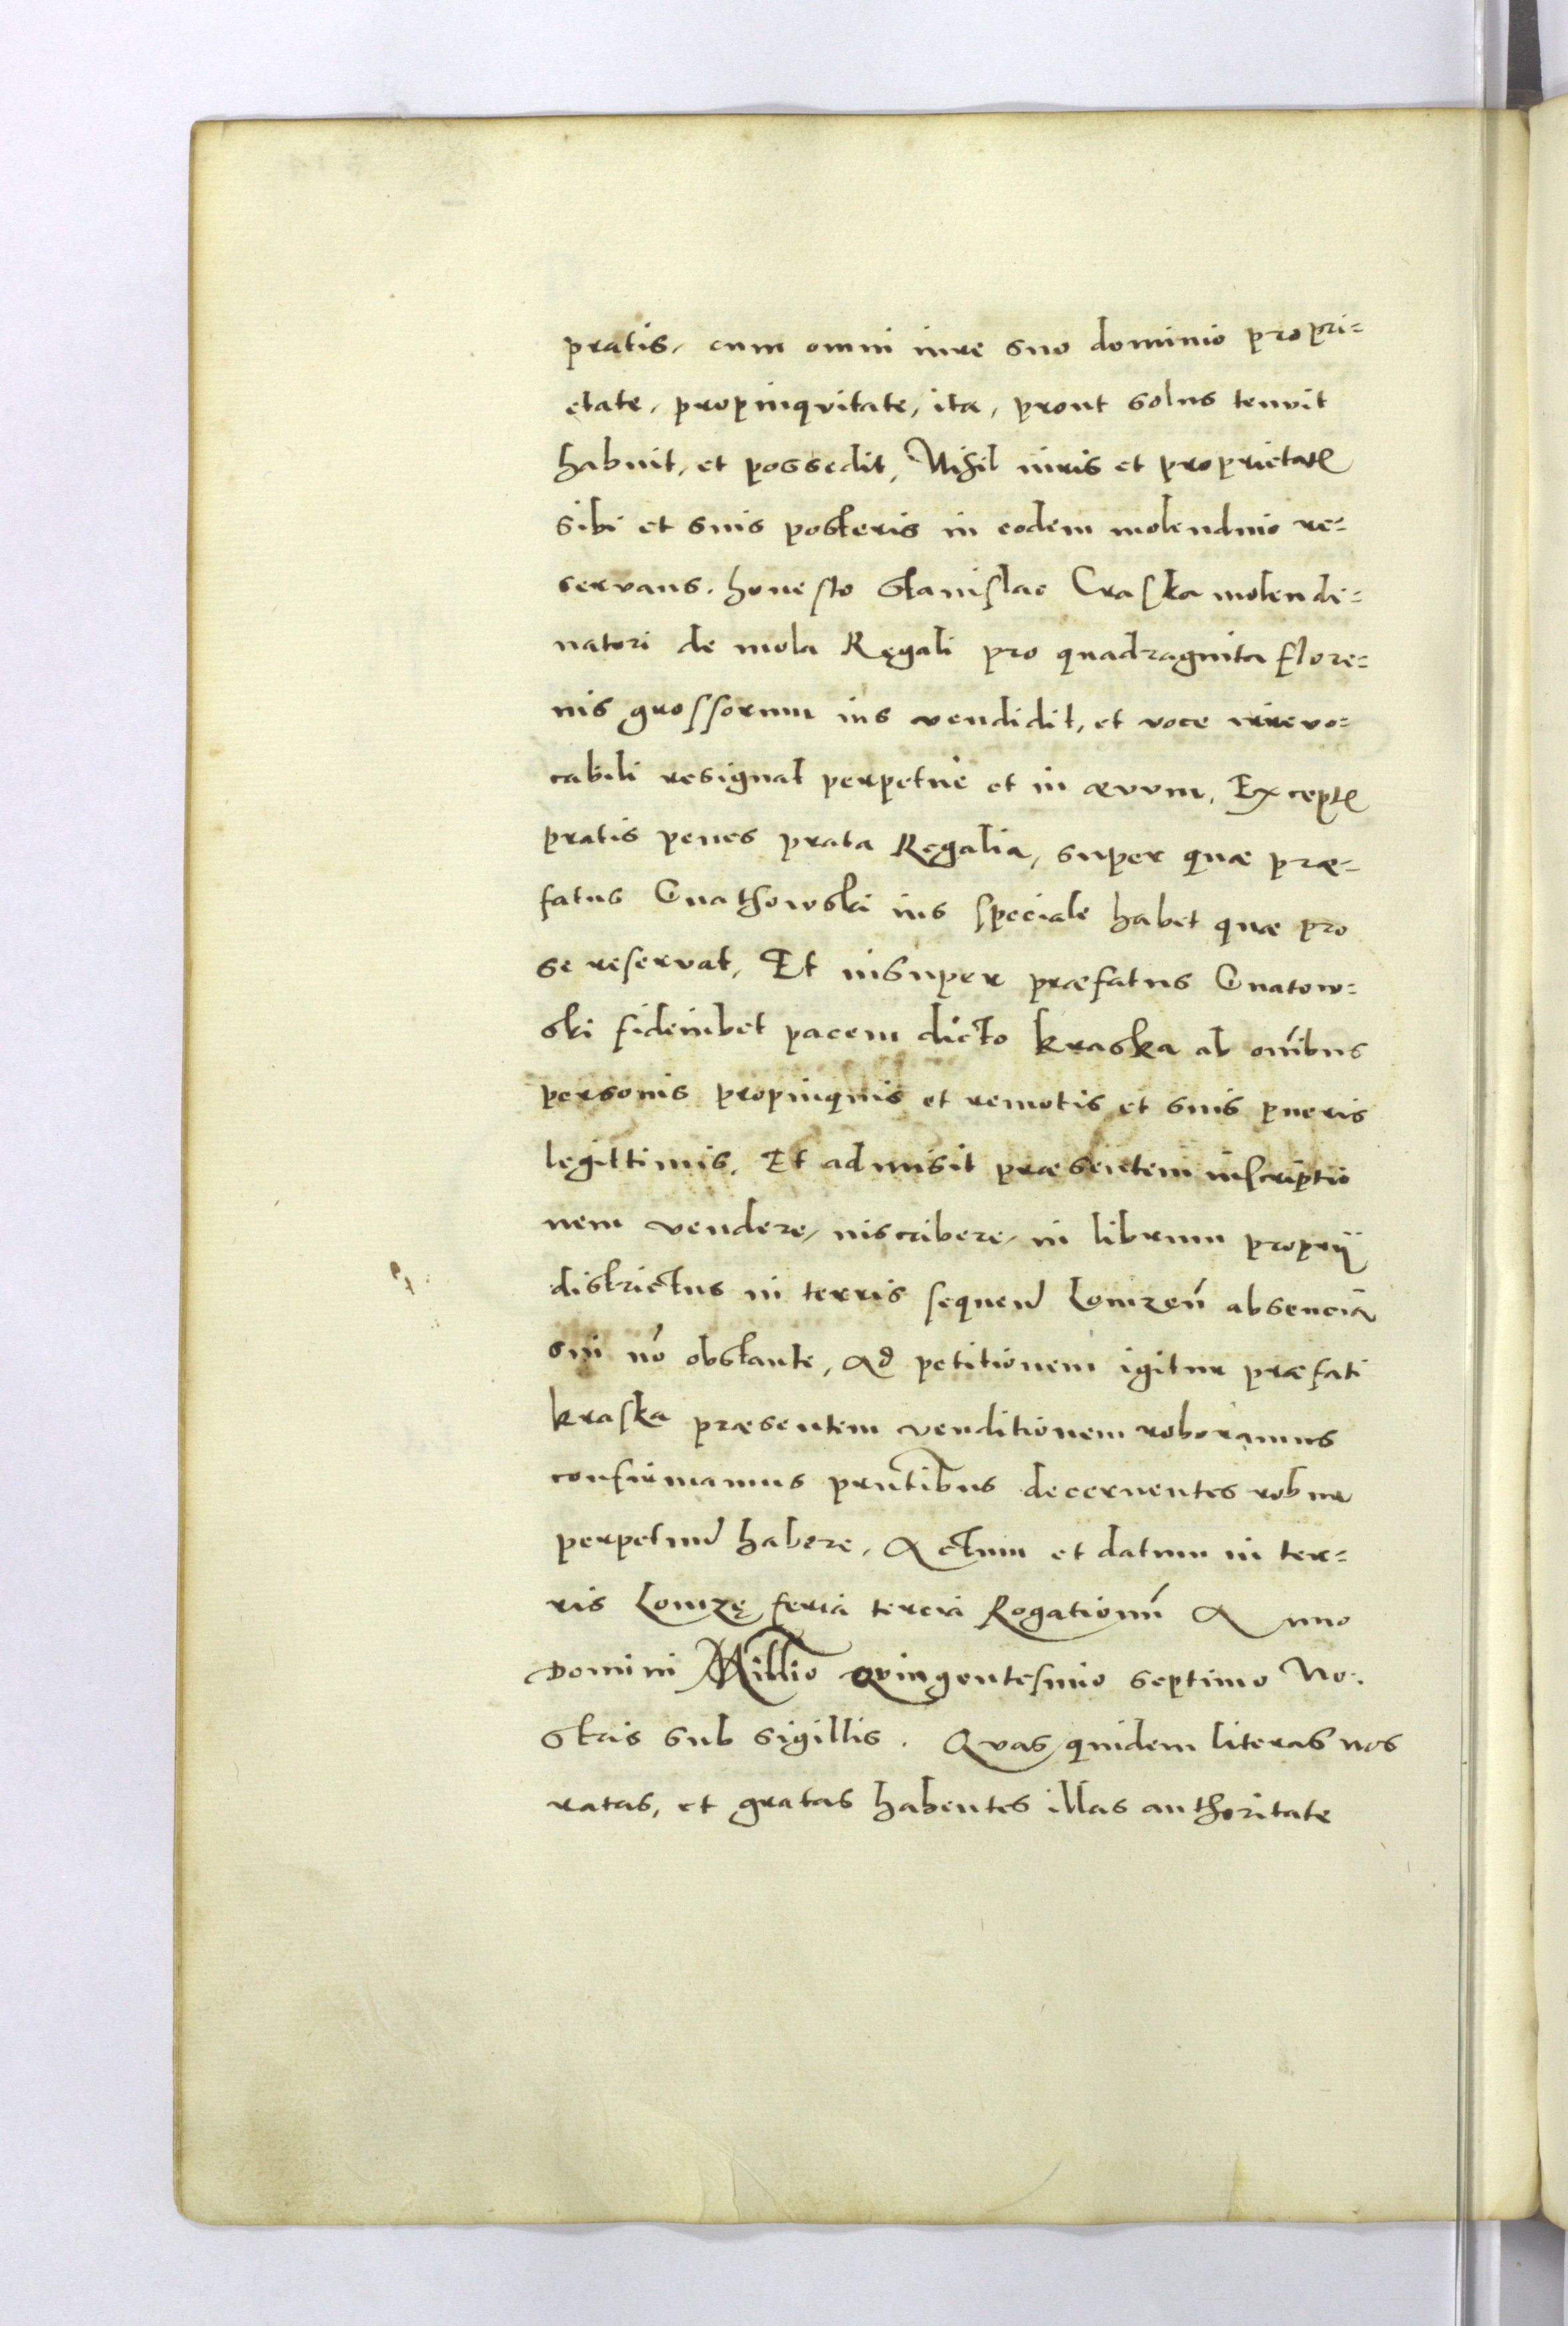 pratis, cum omni iure suo dominio propri=
etate, propinqvitate, ita, prout solus tenvit
habuit, et possedit, Nihil iuris et proprietatꝭ
sibi et suis posteris in eodem molendino re=
servans. honesto Stanislao Craska molendi=
natori de mola Regali pro quadraginta flore=
nis grossorum ius vendidit, et voce irrevo=
cabili resignat perpetuè et in ævvm, Exceptꝭ
pratis penes prata Regalia, super quæ præ=
fatus Gnathowski ius speciale habet quæ pro
se reservat, Et insuper præfatus Gnatow=
ski fideiubet pacem dicto kraska ab oībus
personis propinquis et remotis et suis pueris
legittimis. Et admisit præsentem inscriptio
nem vendere, inscribere, in librum proprij
districtus in terris sequen̄ Lomzen̄ absenciā
sui nō obstante, Ad petitionem igitur præfati
kraska præsentem venditionem roboramus
confirmamus prn̄tibus decernentes robur
perpetuū habere, Actum et datum in ter=
ris Lomzę feria tercia Rogationū Anno
Domini Mill̄io qvingentesimo septimo No=
stris sub sigillis. Qvas quidem literas nos
ratas, et gratas habentes illas authoritate